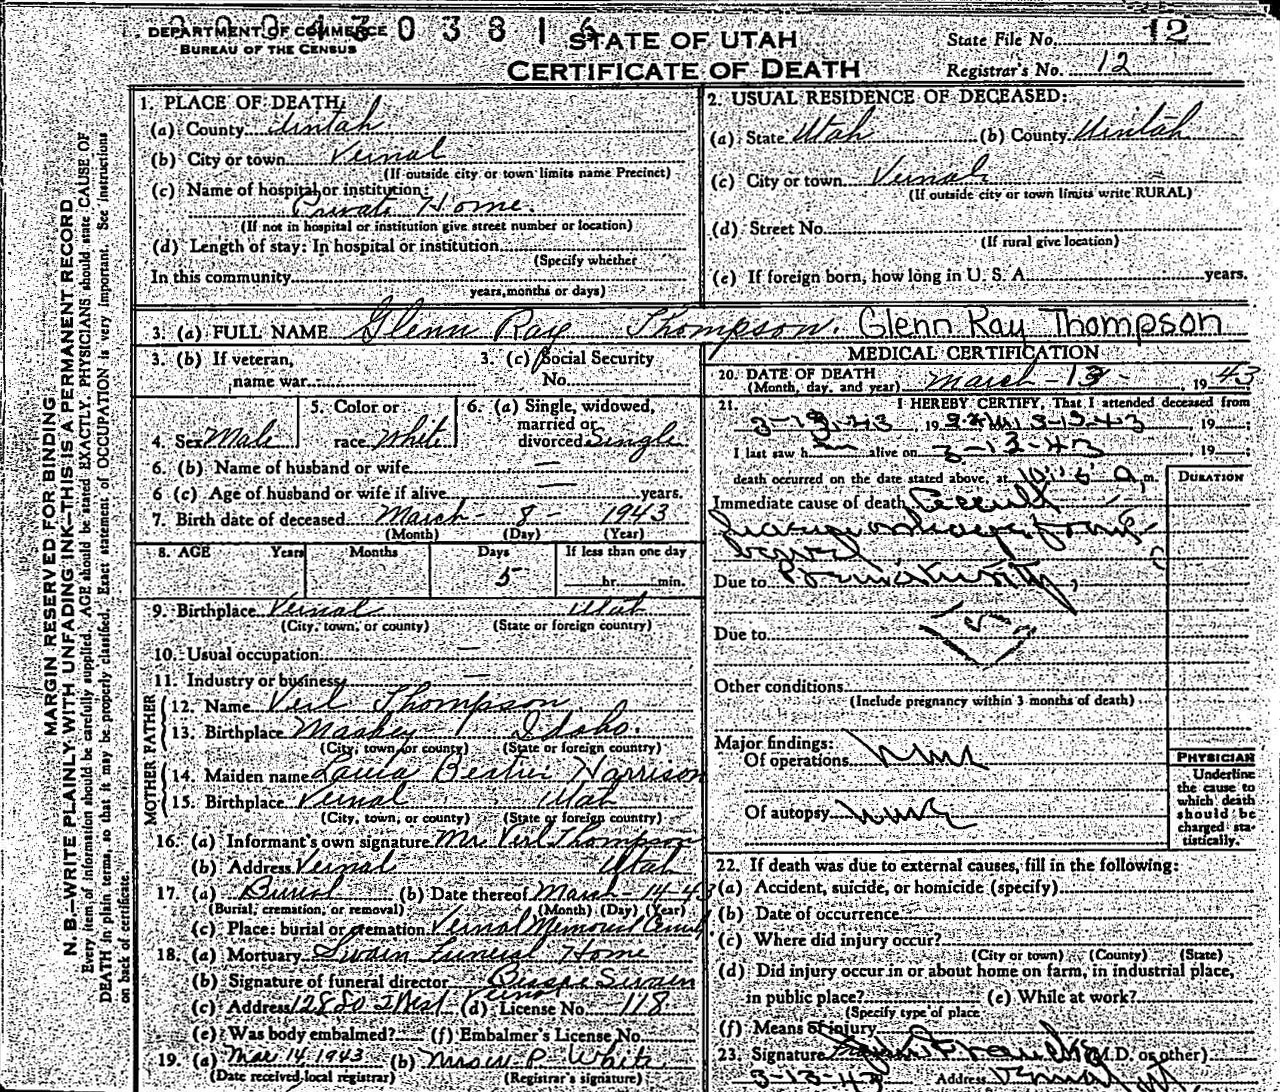 DEPARTMENT OF COMMERCE
BUREAU OF THE CENSUS
STATE OF UTAH
CERTIFICATE OF DEATH
State File No. 12
Registrar's No. 12
MARGIN RESERVED FOR BINDING
N. B.—WRITE PLAINLY WITH UNFADING INK—THIS IS A PERMANENT RECORD
Every item of information should be carefully supplied. AGE should be stated EXACTLY. PHYSICIANS should state CAUSE OF
DEATH in plain terms, so that it may be properly classified. Exact statement of OCCUPATION is very important. See instructions
on back of certificate.
1. PLACE OF DEATH:
(a) County Uintah
(b) City or town Vernal
(If outside city or town limits name Precinct)
(c) Name of hospital or institution:
Private Home
(If not in hospital or institution give street number or location)
(d) Length of stay: In hospital or institution
(Specify whether
In this community
years, months or days)
2. USUAL RESIDENCE OF DECEASED:
(a) State Utah (b) County Uintah
(c) City or town Vernal
(If outside city or town limits write RURAL)
(d) Street No.
(If rural give location)
(e) If foreign born, how long in U. S. A. years.
3. (a) FULL NAME Glenn Ray Thompson. Glenn Ray Thompson
3. (b) If veteran, name war
3. (c) Social Security No.
4. Sex Male
5. Color or race White
6. (a) Single, widowed, married or divorced Single
6. (b) Name of husband or wife —
6 (c) Age of husband or wife if alive — years.
7. Birth date of deceased March - 8 - 1943
(Month) (Day) (Year)
8. AGE Years Months Days If less than one day
5 hr. min.
9. Birthplace Vernal Utah
(City, town, or county) (State or foreign country)
10. Usual occupation —
11. Industry or business —
FATHER
12. Name Verl Thompson
13. Birthplace Idaho.
(City, town, or county) (State or foreign country)
MOTHER
14. Maiden name Harrison
15. Birthplace Vernal Utah
(City, town, or county) (State or foreign country)
16. (a) Informant's own signature Mr. Verl Thompson
(b) Address Vernal Utah
17. (a) Burial (b) Date thereof March - 14 - 43
(Burial, cremation, or removal) (Month) (Day) (Year)
(c) Place: burial or cremation Vernal Memorial
18. (a) Mortuary Swain Funeral Home
(b) Signature of funeral director Swain
(c) Address Vernal (d) License No. 118
(e) Was body embalmed? (f) Embalmer's License No.
19. (a) Mar 14 1943 (b) P. White
(Date received local registrar) (Registrar's signature)
MEDICAL CERTIFICATION
20. DATE OF DEATH
(Month, day, and year) March 13 - , 1943
21. I HEREBY CERTIFY, That I attended deceased from
3-13-43 19 3-13-43 19 ;
I last saw h alive on 3-13-43, 19 ;
death occurred on the date stated above, at m.
DURATION
Immediate cause of death
Due to Prematurity
Due to
Other conditions
(Include pregnancy within 3 months of death)
Major findings:
Of operations none
Of autopsy none
PHYSICIAN
Underline
the cause to
which death
should be
charged sta-
tistically.
22. If death was due to external causes, fill in the following:
(a) Accident, suicide, or homicide (specify)
(b) Date of occurrence
(c) Where did injury occur?
(City or town) (County) (State)
(d) Did injury occur in or about home on farm, in industrial place,
in public place? (e) While at work?
(Specify type of place
(f) Means of injury
23. Signature (M.D. or other)
3-13-43 Address Vernal